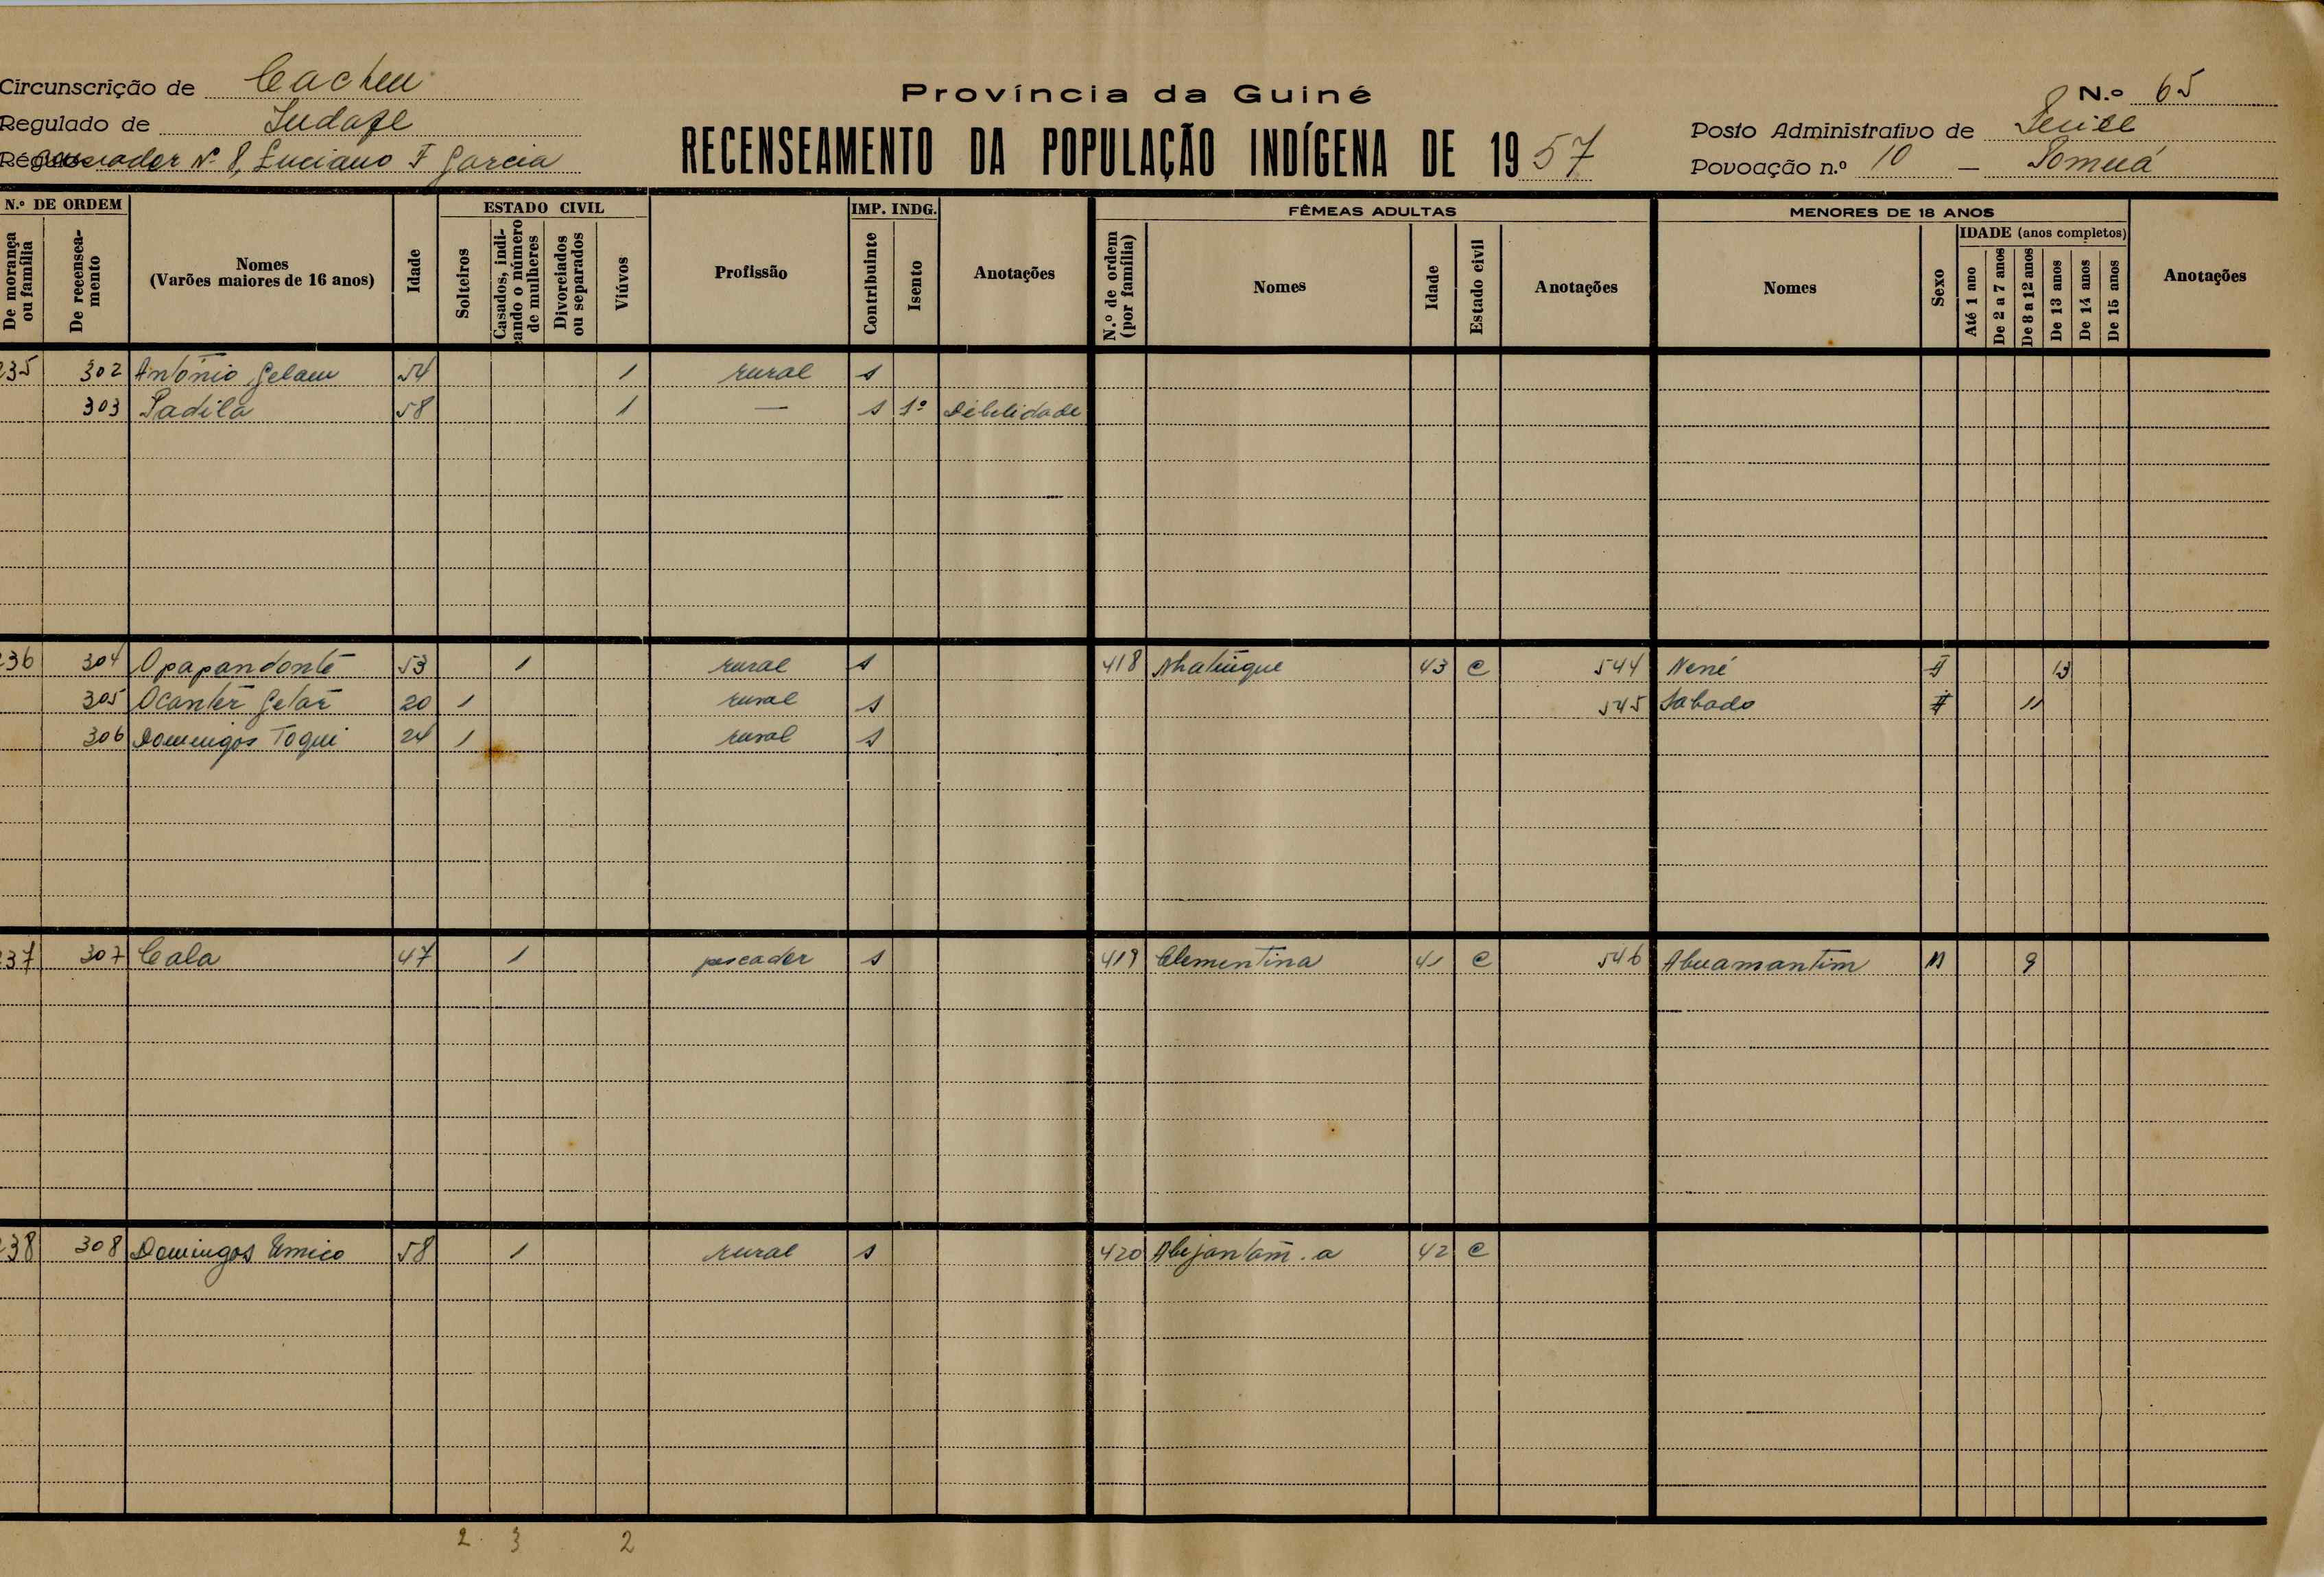 Circunscrição de Cacheu
Província da Guiné
N.º 65
Regulado de
RECENSEAMENTO DA POPULAÇÃO INDÍGENA DE 1957
Posto Administrativo de
Nº 8, Luciano F Garcia
Povoação n.º 10 —
N.º DE ORDEM
De morança ou família
De recenseamento
Nomes
(Varões maiores de 16 anos)
Idade
ESTADO CIVIL
Solteiros
Casados, indicando o número de mulheres
Divorciados ou separados
Viúvos
Profissão
IMP. INDG.
Contribuinte
Isento
Anotações
FÊMEAS ADULTAS
N.º de ordem (por família)
Nomes
Idade
Estado civil
Anotações
MENORES DE 18 ANOS
Nomes
Sexo
IDADE (anos completos)
Até 1 ano
De 2 a 7 anos
De 8 a 12 anos
De 13 anos
De 14 anos
De 15 anos
Anotações
235 302 António Gelam 54 1 rural s
303 Padila 58 1 — s 1º Debelidade
236 304 Opapandonté 53 1 rural s 418 43 C 544 Nené F 13
305 Ocanter Getar 20 1 rural s 545 Sabado F 11
306 Domingos Toqui 24 1 rural s
237 307 Cala 47 1 pescador s 419 Clementina 41 C 546 Abuamantim M 9
238 308 Domingos 58 1 rural s 420 42 C
2 3 2